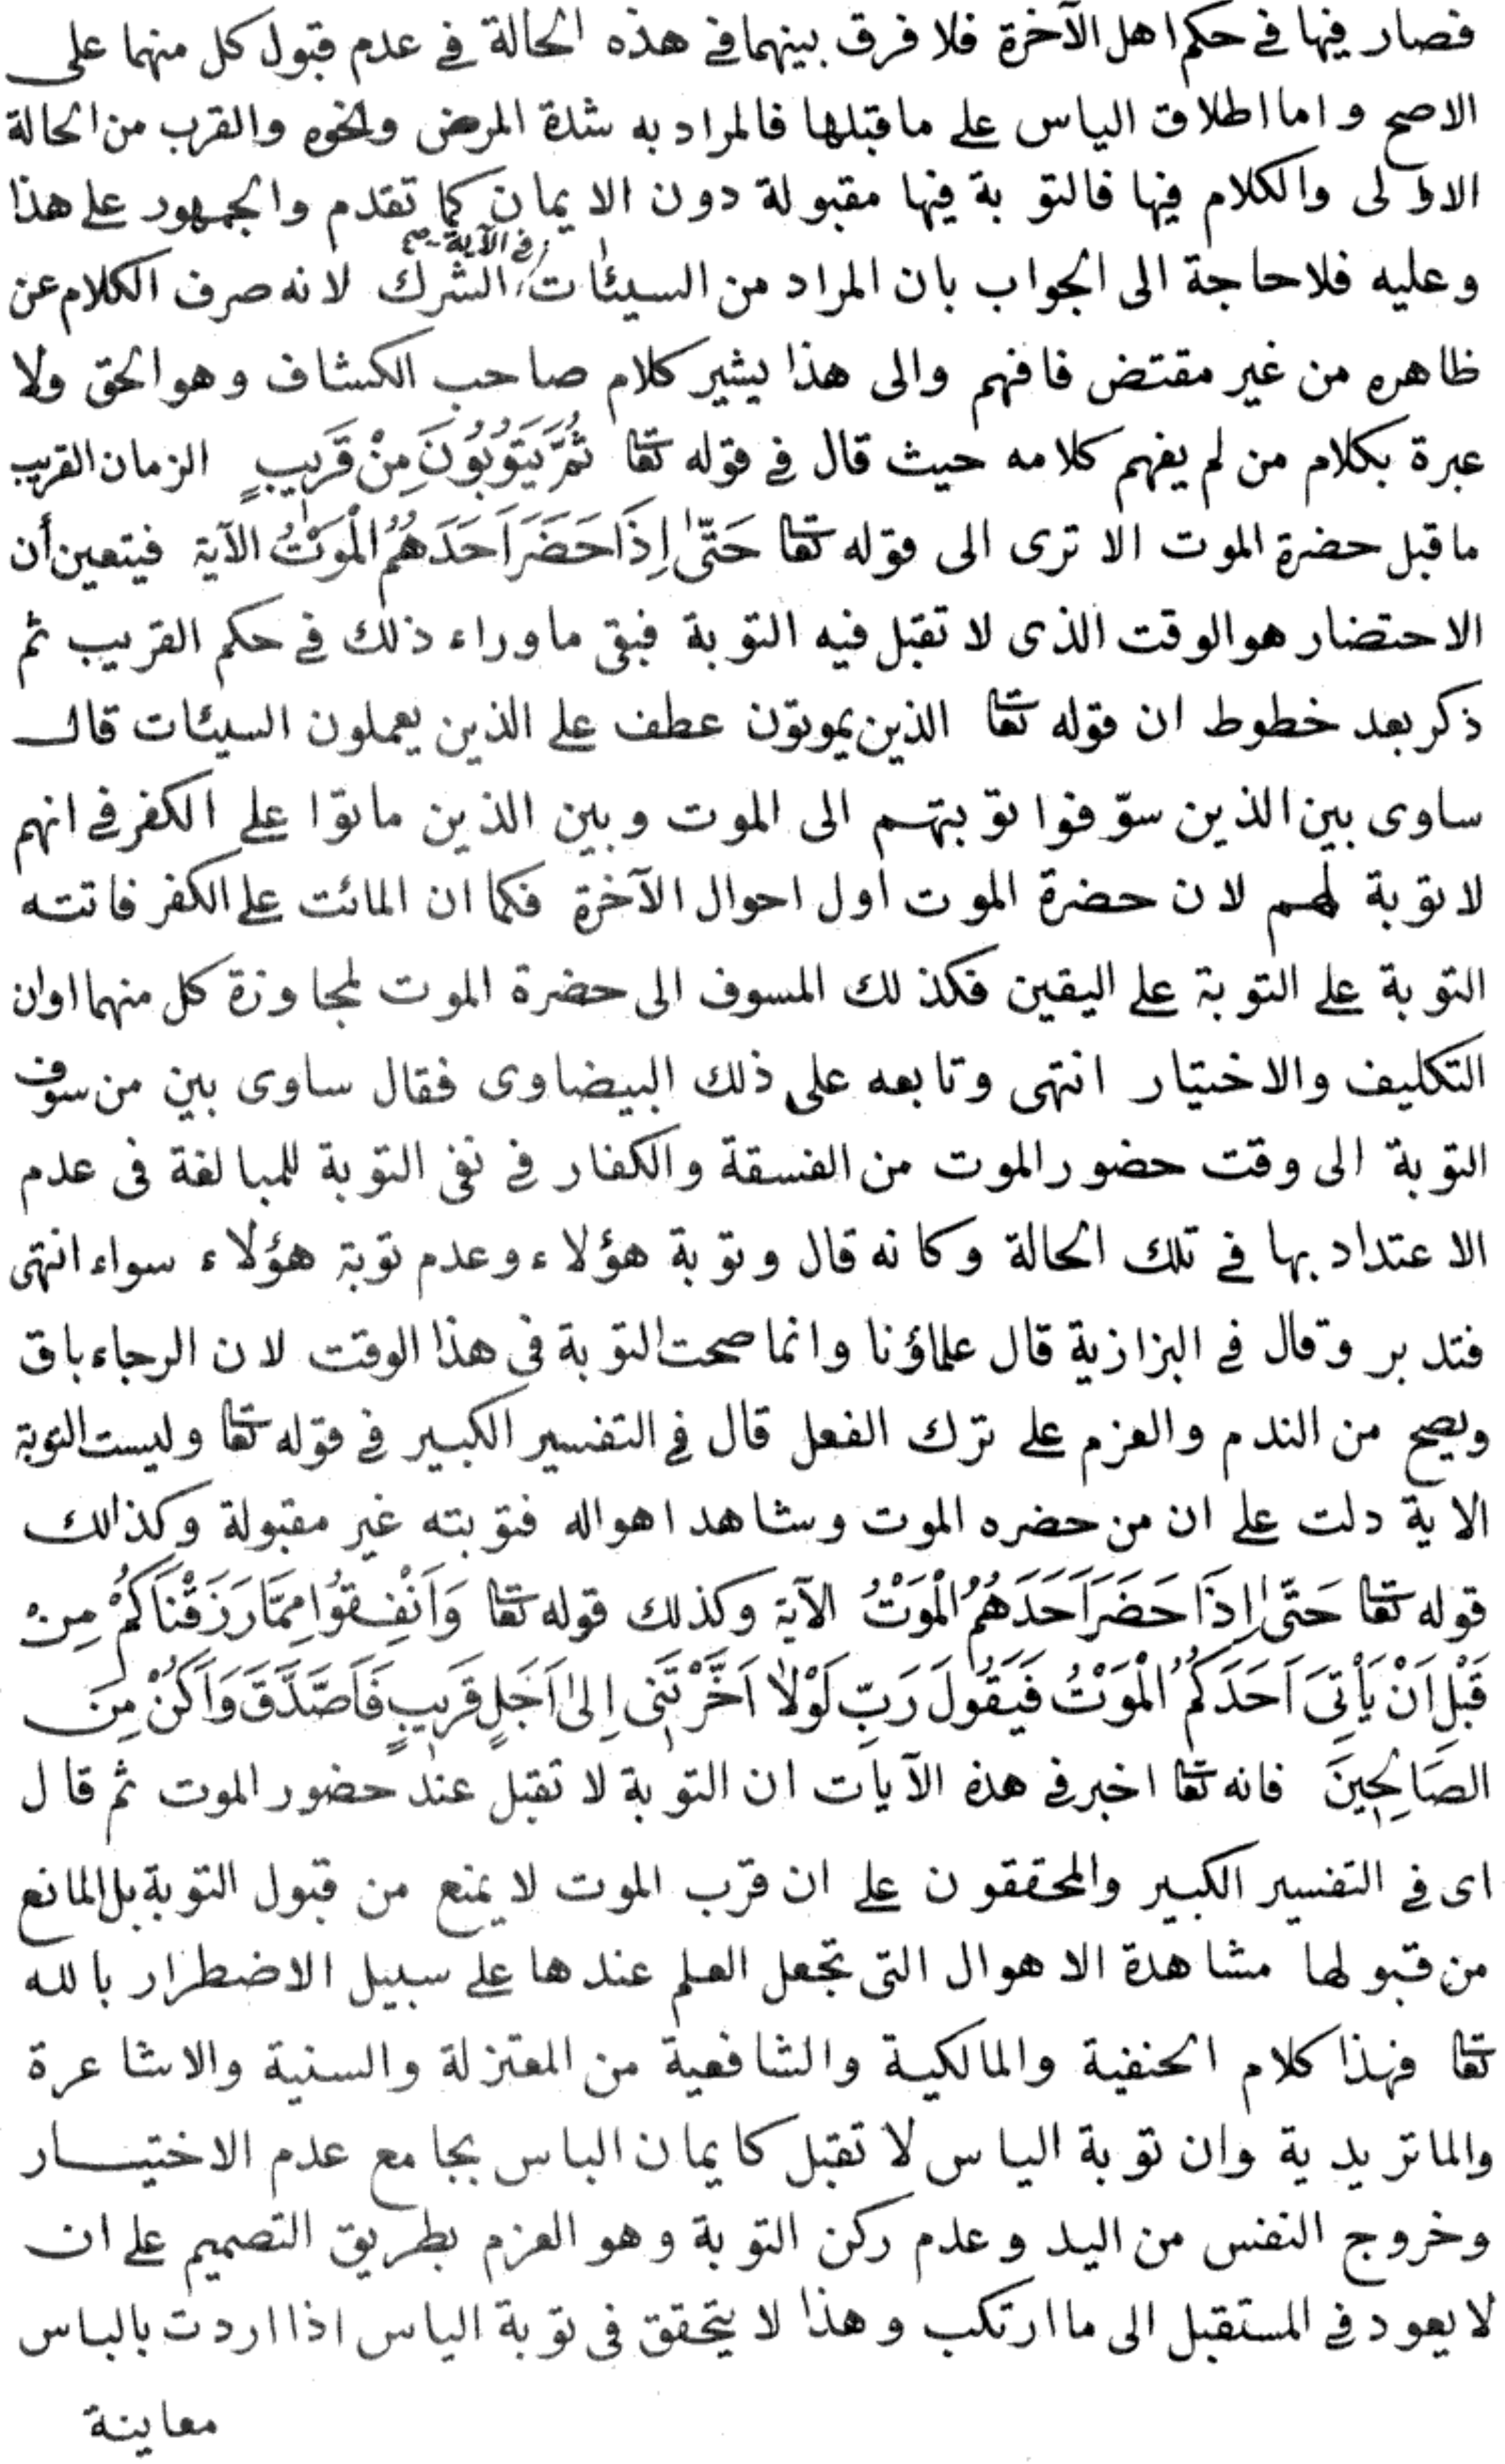 فصار فيها في حكم اهل الآخرة فلا فرق بينهما في هذه الحالة في عدم قبول كل منهما على
الاصح واما اطلاق الياس على ما قبلها فالمراد به شدة المرض والخوف والقرب من الحالة
الاولى والكلام فيها فالتوبة فيها مقبولة دون الايمان كما تقدم والجمهور على هذا
وعليه فلا حاجة الى الجواب بان المراد من السيئات في الآية الشرك لانه صرف الكلام عن
ظاهره من غير مقتض فافهم والى هذا يشير كلام صاحب الكشاف وهو الحق ولا
عبرة بكلام من لم يفهم كلامه حيث قال في قوله تعا ثُمَّ يَتُوبُونَ مِنْ قَرِيبٍ الزمان القريب
ما قبل حضرة الموت الا ترى الى قوله تعا حَتّٰى اِذَا حَضَرَ اَحَدَهُمُ الْمَوْتُ الآية فيتعين أن
الاحتضار هو الوقت الذى لا تقبل فيه التوبة فبقى ما وراء ذلك في حكم القريب ثم
ذكر بعد خطوط ان قوله تعا الذين يموتون عطف على الذين يعملون السيئات قال
ساوى بين الذين سوّفوا توبتهم الى الموت وبين الذين ماتوا على الكفر في انهم
لا توبة لهم لان حضرة الموت اول احوال الآخرة فكما ان المائت على الكفر فاتته
التوبة على التوبة على اليقين فكذلك المسوف الى حضرة الموت لمجاوزة كل منهما اوان
التكليف والاختيار انتهى وتابعه على ذلك البيضاوى فقال ساوى بين من سوف
التوبة الى وقت حضور الموت من الفسقة والكفار في نفى التوبة للمبالغة فى عدم
الاعتداد بها في تلك الحالة وكانه قال وتوبة هؤلاء وعدم توبة هؤلاء سواء انتهى
فتدبر وقال في البزازية قال علماؤنا وانما صحت التوبة فى هذا الوقت لان الرجاء باق
ويصح من الندم والعزم على ترك الفعل قال في التفسير الكبير في قوله تعا وليست التوبة
الاية دلت على ان من حضره الموت وشاهد اهواله فتوبته غير مقبولة وكذالك
قوله تعا حَتّٰى اِذَا حَضَرَ اَحَدَهُمُ الْمَوْتُ الآية وكذلك قوله تعا وَاَنْفِقُوا مِمَّا رَزَقْنَاكُمْ مِنْ
قَبْلِ اَنْ يَأْتِىَ اَحَدَكُمُ الْمَوْتُ فَيَقُولَ رَبِّ لَوْلَا اَخَّرْتَنِى اِلىٰ اَجَلٍ قَرِيبٍ فَاَصَّدَّقَ وَاَكُنْ مِنَ
الصَالِحِينَ فانه تعا اخبر في هذه الآيات ان التوبة لا تقبل عند حضور الموت ثم قال
اى في التفسير الكبير والمحققون على ان قرب الموت لا يمنع من قبول التوبة بل المانع
من قبولها مشاهدة الاهوال التى تجعل العلم عندها على سبيل الاضطرار بالله
تعا فهذا كلام الحنفية والمالكية والشافعية من المعتزلة والسنية والاشاعرة
والماتريدية وان توبة الياس لا تقبل كايمان الباس بجامع عدم الاختيار
وخروج النفس من اليد وعدم ركن التوبة وهو العزم بطريق التصميم على ان
لا يعود في المستقبل الى ما ارتكب وهذا لا يتحقق فى توبة الياس اذا اردت بالباس
معاينة